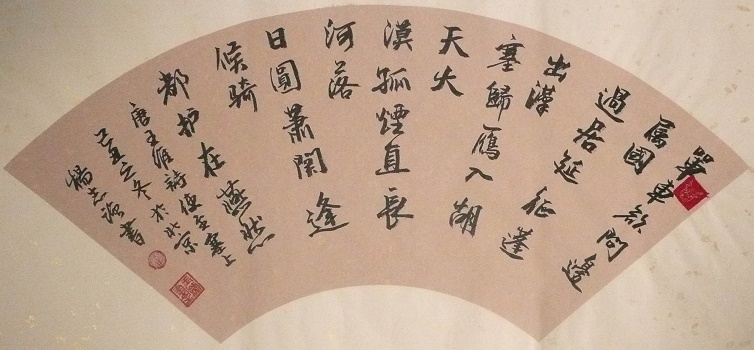 單車欲問邊
屬國
過居延征蓬
出漢
塞歸鴈入胡
天大
漠孤煙直長
河落
日圓蕭關逢
候騎
都护在燕然
唐王維詩使至塞上
己丑之冬於北京
楊志書